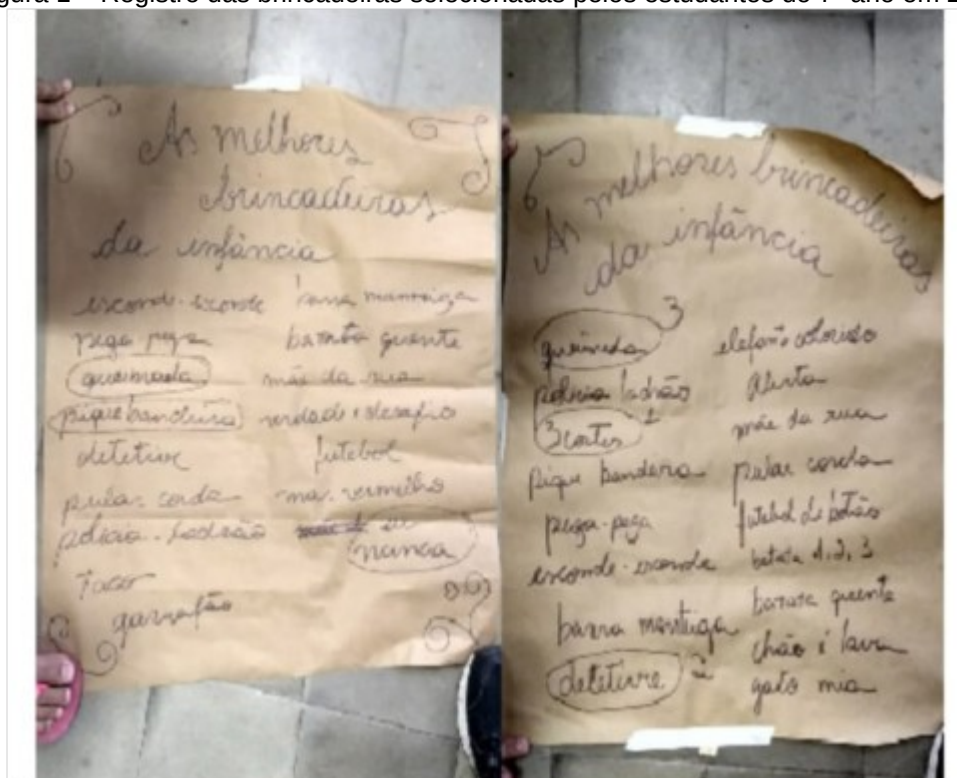 As melhores
brincadeiras
da infância
esconde-esconde
pega pega
queimada
pique bandeira
detetive
pular corda
polícia-ladrão
Taco
garrafão
barra manteiga
batata quente
mãe da rua
verdade e desafio
futebol
mar vermelho
nunca
As melhores brincadeiras
da infância
queimada 3
polícia ladrão
3 cortes 1
pique bandeira
pega-pega
esconde-esconde
barra manteiga
detetive 2
elefante colorido
alerta
mãe da rua
pular corda
futebol de botão
batata 1, 2, 3
batata quente
chão é lava
gato mia